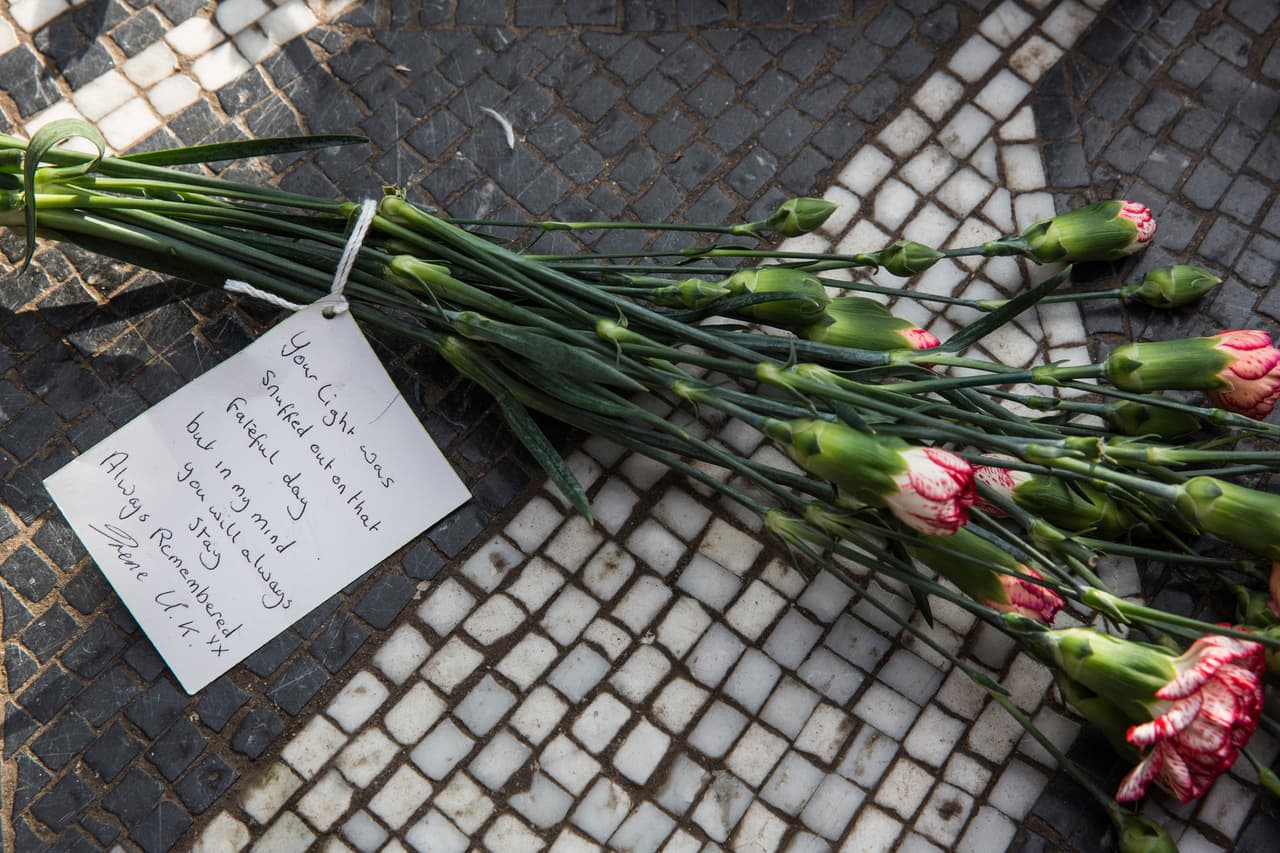 Your light was
snuffed out on that
Fateful day
but in my mind
you will always
stay.
Always Remembered
U.K. xx